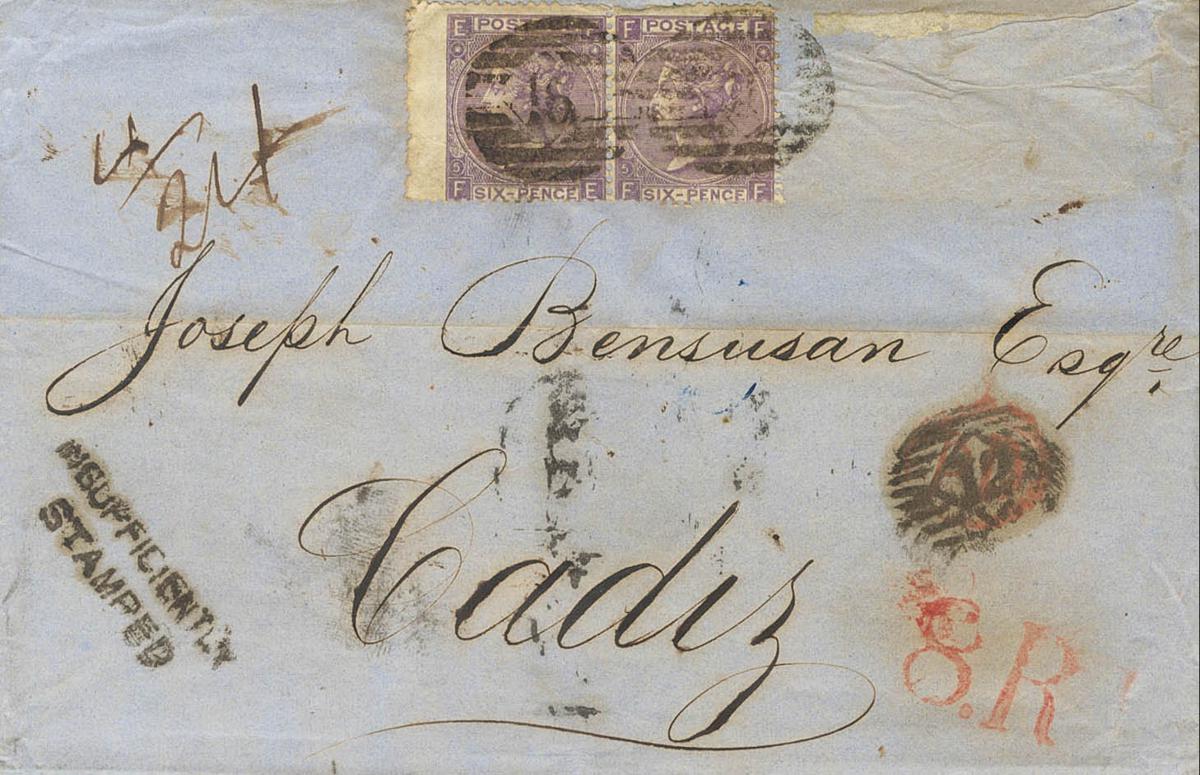 E POSTAGE F POSTAGE F
F SIX-PENCE E F SIX-PENCE F
Joseph Bensusan Esqre
Cadiz
INSUFFICIENTLY
STAMPED
8.R